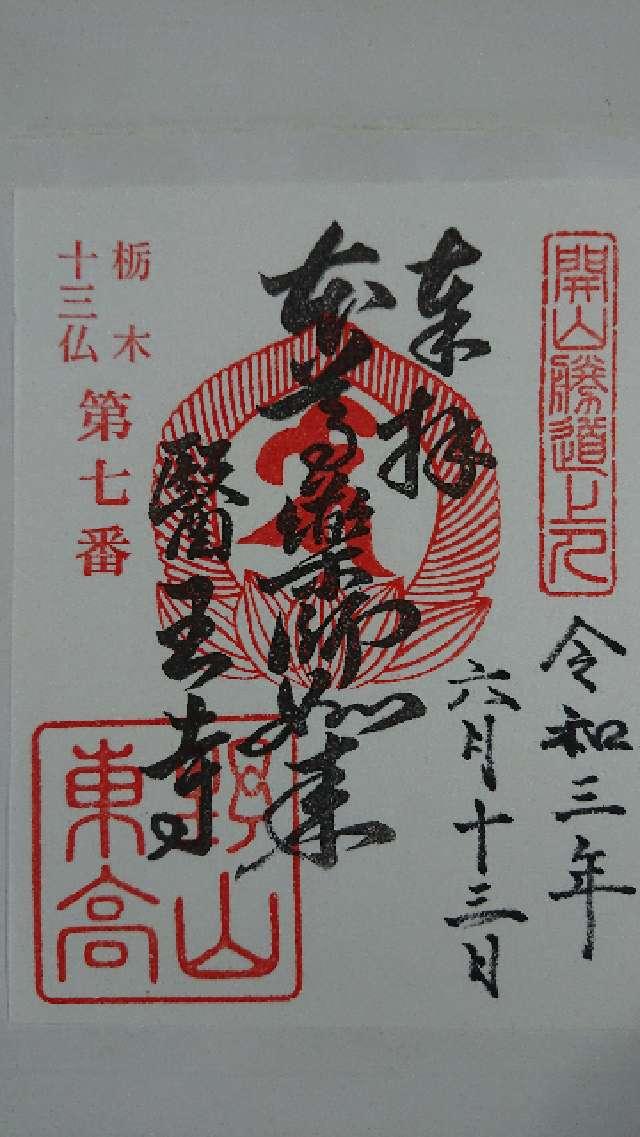 開山勝道上人
令和三年
六月十三日
奉拝
本尊薬師如来
醫王寺
栃木
十三仏
第七番
東高野山